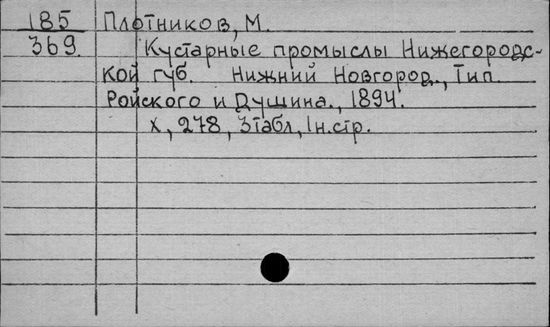 185 Плотников, М.
369. Кустарные промыслы Нижегородс-
кой губ. Нижний Новгород., Тип.
Ройского и Душина., 1894.
X, 278, 3табл, 1н.стр.